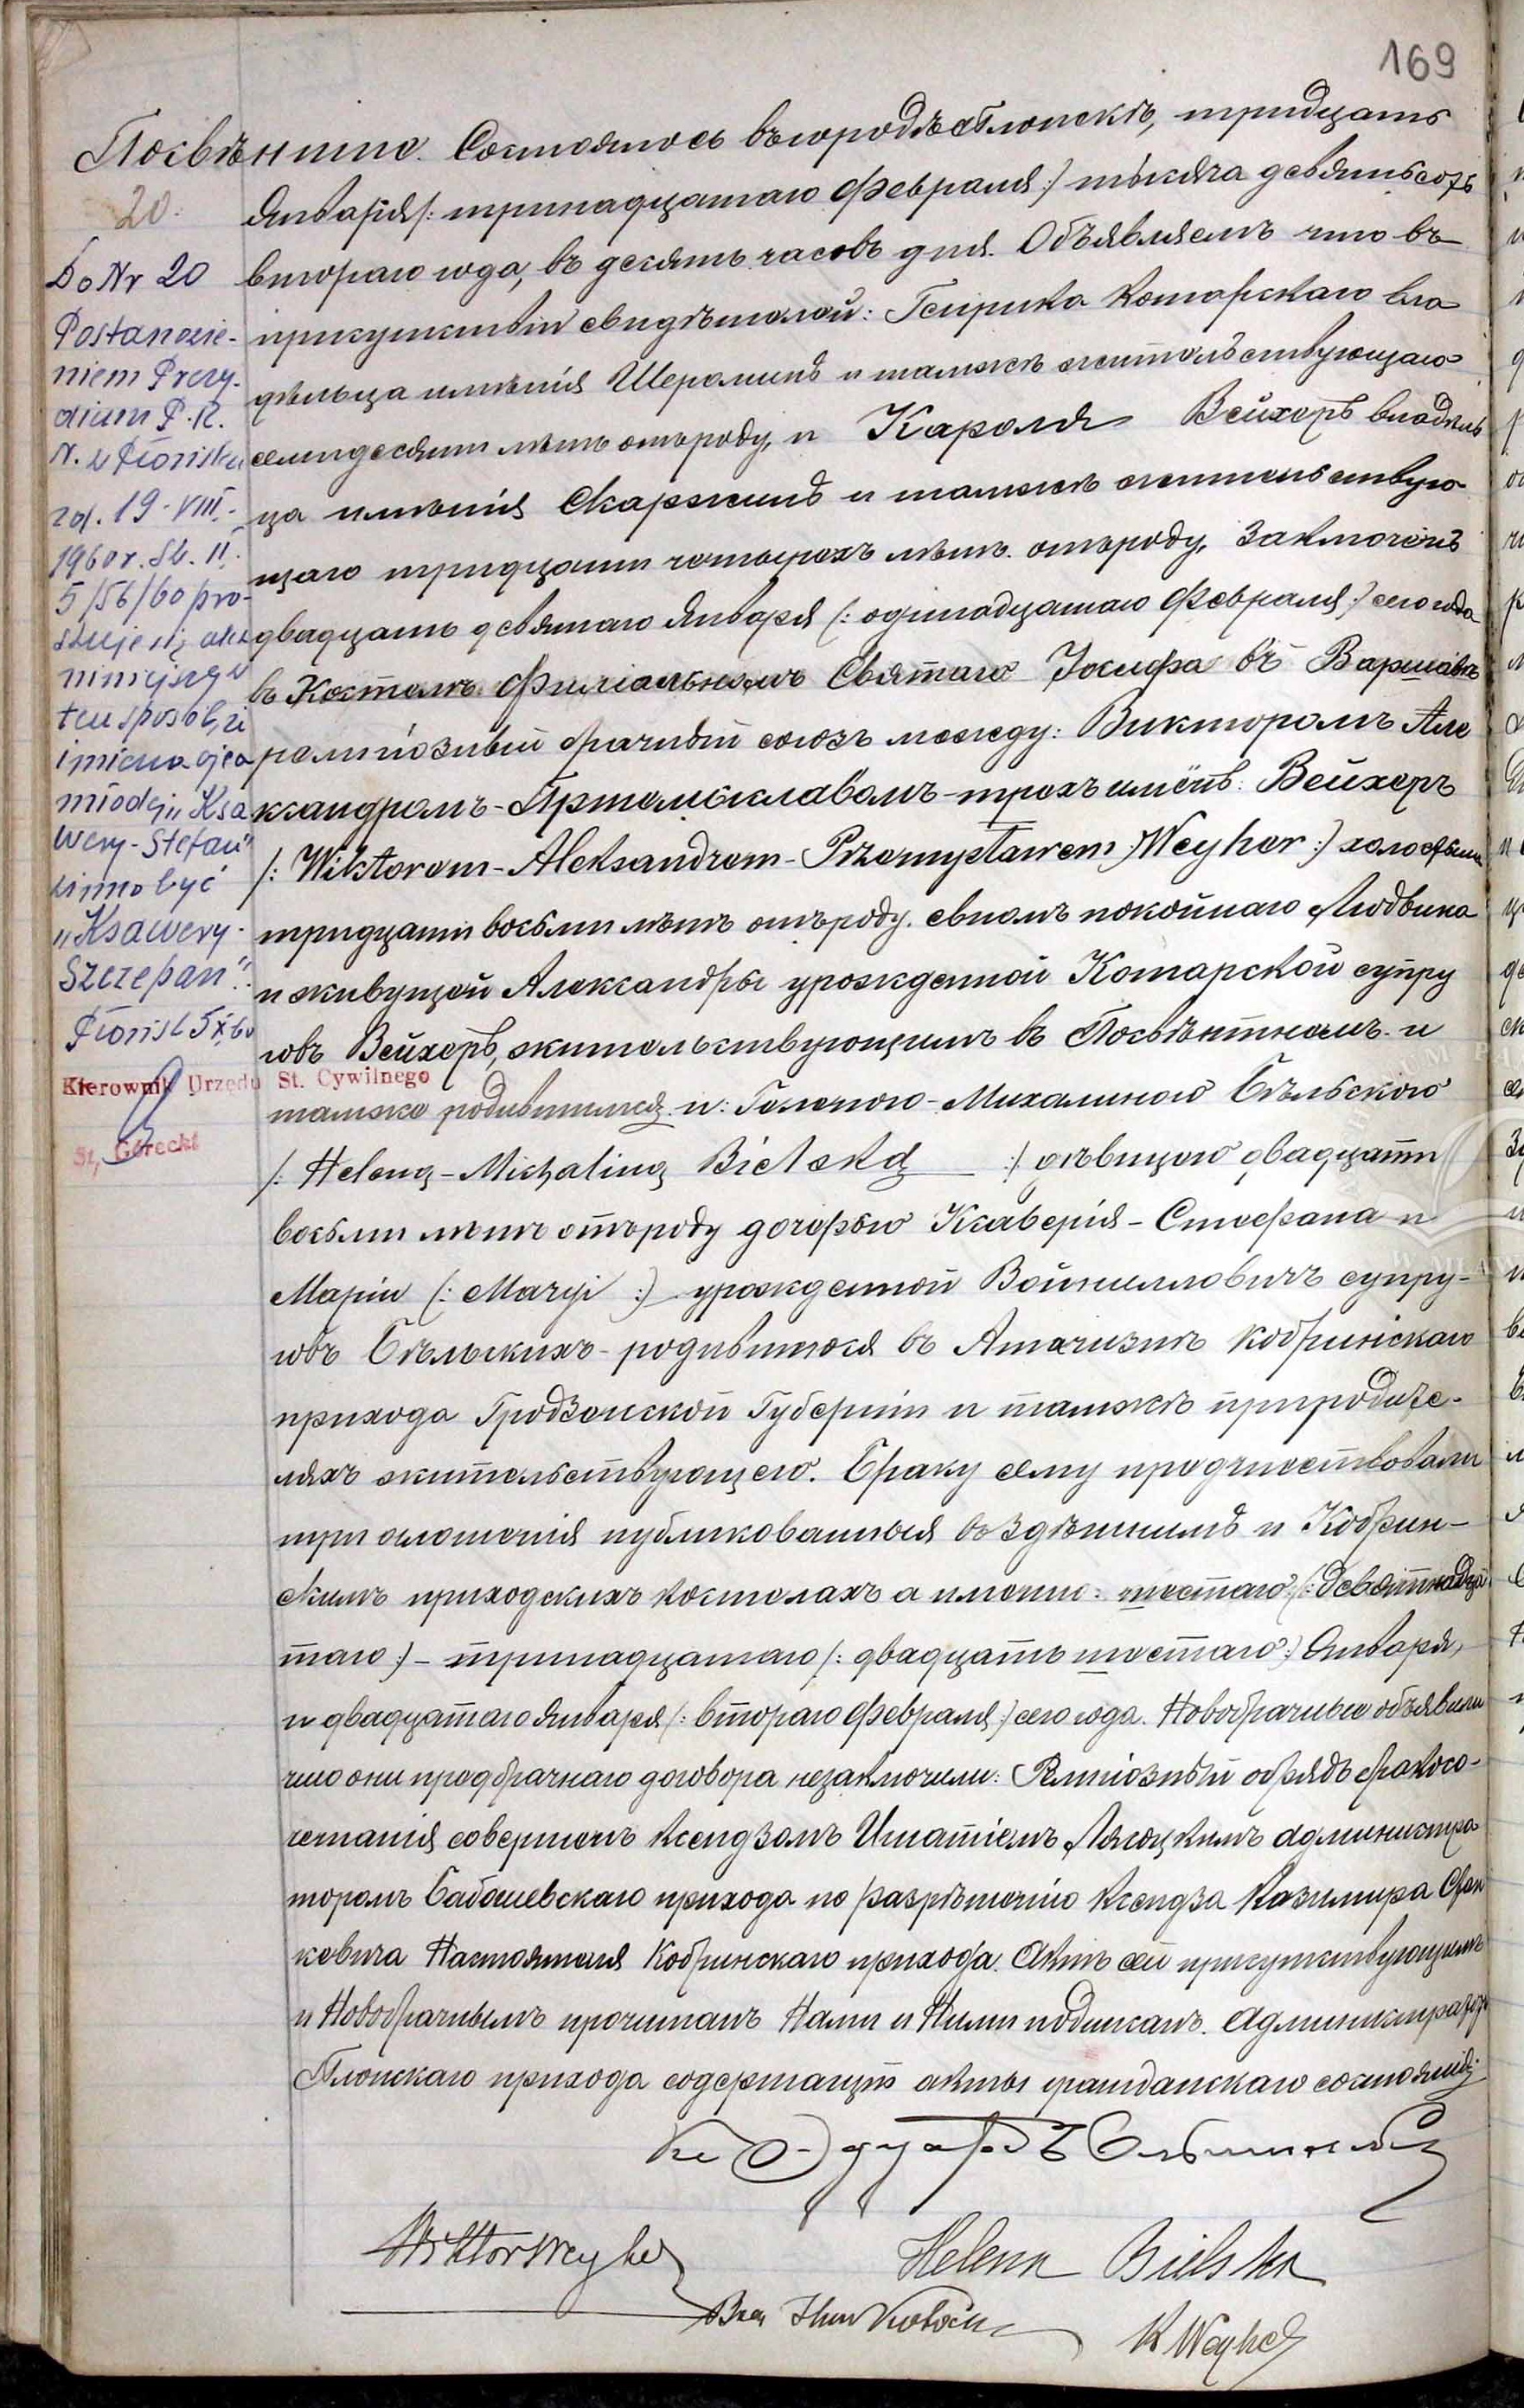 169
Посвѣнтне. Состоялось въ городѣ Плонскѣ, тридцать
20.
Января /: тринадцатаго Февраля :/ тысяча девятьсотъ
втораго года, въ десять часовъ дня. Объявляемъ что въ
присутствіи свидѣтелей: Генрика Котарскаго вла
дѣльца имѣнія Шероминъ и тамже жительствующаго
семидесяти лѣтъ отъ роду, и Кароля Вейхеръ владѣль
ца имѣнія Скаржинъ и тамже жительствую
щаго тридцати четырехъ лѣтъ отъ роду, заключенъ
двадцать девятаго Января (: одинадцатаго Февраля :) сего года
въ Костелѣ Филіальномъ Святаго Іосифа въ Варшавѣ
религіозный брачный союзъ между: Викторомъ Але
ксандромъ-Пржемыславомъ - трехъ имёнъ: Вейхеръ
/: Wiktorem-Aleksandrem-Przemysławem Weyher :/ холостымъ
тридцати восьми лѣтъ отъ роду, сыномъ покойнаго Людвика
и живущей Александры урожденной Котарской супру
говъ Вейхеръ, жительствующимъ въ Посвѣнтномъ и
тамже родившимся и: Геленою-Михалиною Бѣльскою
/: Heleną-Michaliną Bielską :/ дѣвицею двадцати
восьми лѣтъ отъ роду дочерью Ксаверія-Стефана и
Маріи (: Maryi :) урожденной Войнилловичъ супру-
говъ Бѣльскихъ - родившеюся въ Атачизнѣ Кобринскаго
прихода Гродзенской Губерніи и тамже при родите-
ляхъ жительствующею. Браку сему предшествовали
три оглашенія публикованныя въ здѣшнимъ и Кобрин-
скимъ приходскихъ костелахъ а именно: шестаго (: девятнадца
таго :) - тринадцатаго (: двадцать шестаго :) Января,
и двадцатаго Января (: втораго Февраля :) сего года. Новобрачные объявили
что они предбрачнаго договора незаключили: Религіозный обрядъ бракосо-
четанія совершенъ Ксендзомъ Игнатіемъ администра
торомъ прихода по разрѣшенію Ксендза Казимира
кевича Настоятеля Кобринскаго прихода. Актъ сей присутствующимъ
и Новобрачнымъ прочитанъ Нами и Ними подписанъ. Администраторъ
Плонскаго прихода содержащій акты гражданскаго состоянія:
Кс Эдуардъ
Wiktor Weyher
Helena Bielska
K Weyher
Do Nr 20
Postanowie-
niem Prezy-
dium P.R.
N. w Płońsku
zd. 19-VIII-
1960 r. Sb. II.
5/56/60 pro-
stuje się akt
niniejszy w
ten sposób, że
imiona ojca
młodej „Ksa
wery-Stefan”
winno być
„Ksawery-
Szczepan”.
Płońsk 5 X 60
Kierownik Urzędu St. Cywilnego
St. Górecki